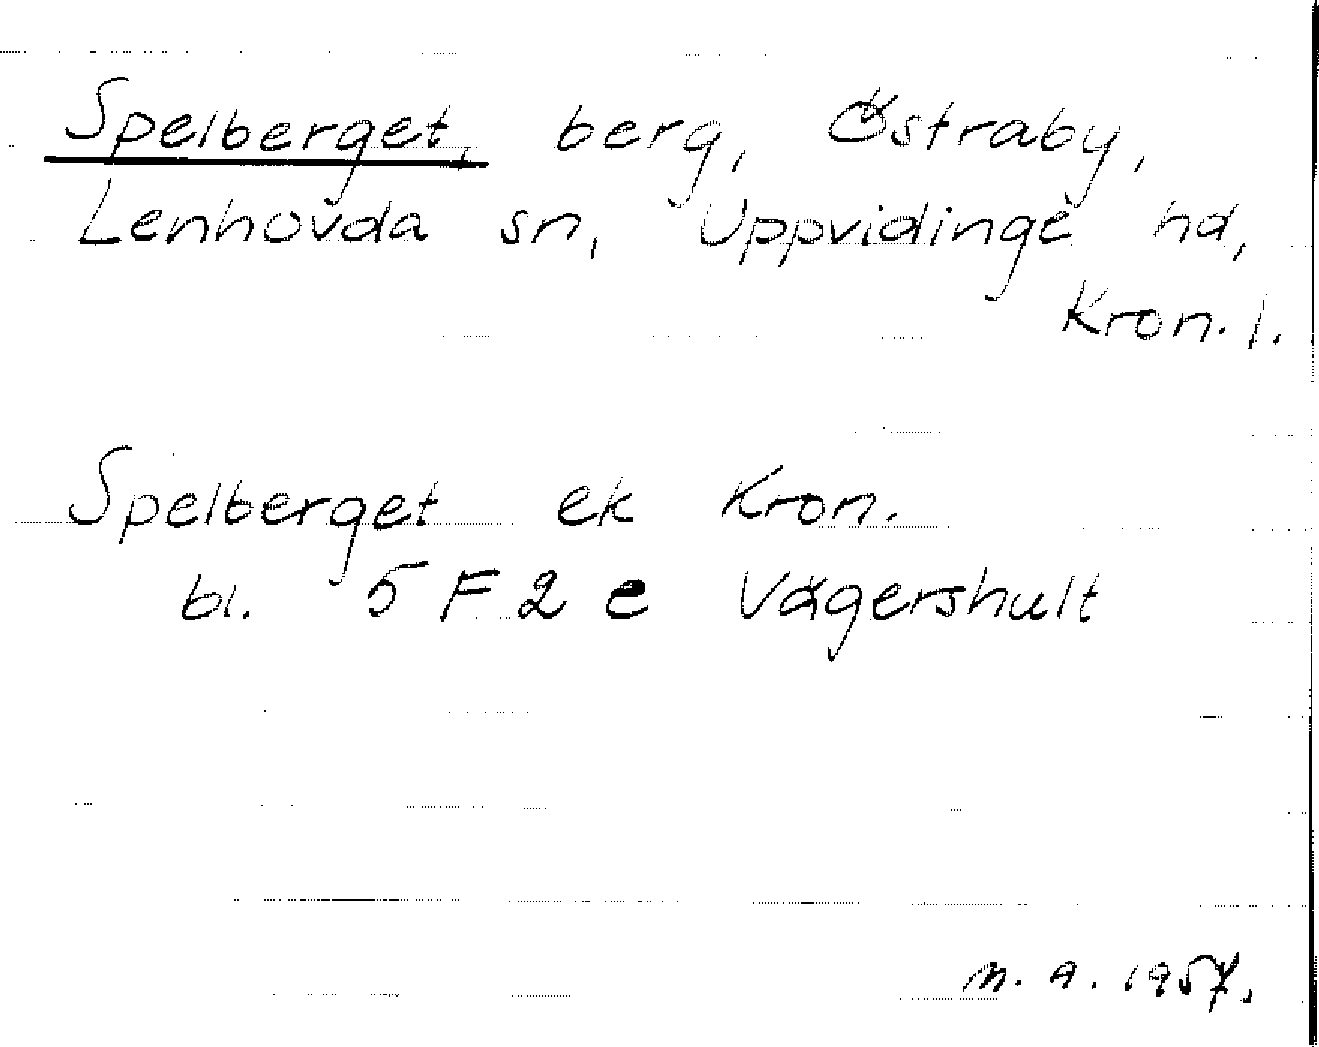 Spelberget, berg, Östraby,
Lenhovda sn, Uppvidinge hd,
Kron. l.
Spelberget ek Kron.
bl. 5 F 2 e Vägershult
n. a. 1957.